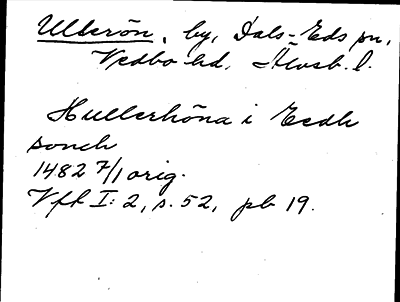 Ullerön, by, Dals-Eds sn,
Vedbo hd, Älvsb. l.
Hullerhöna i Eedh
sonch
1482 7/1 orig.
Vft I: 2, s. 52, pb 19.